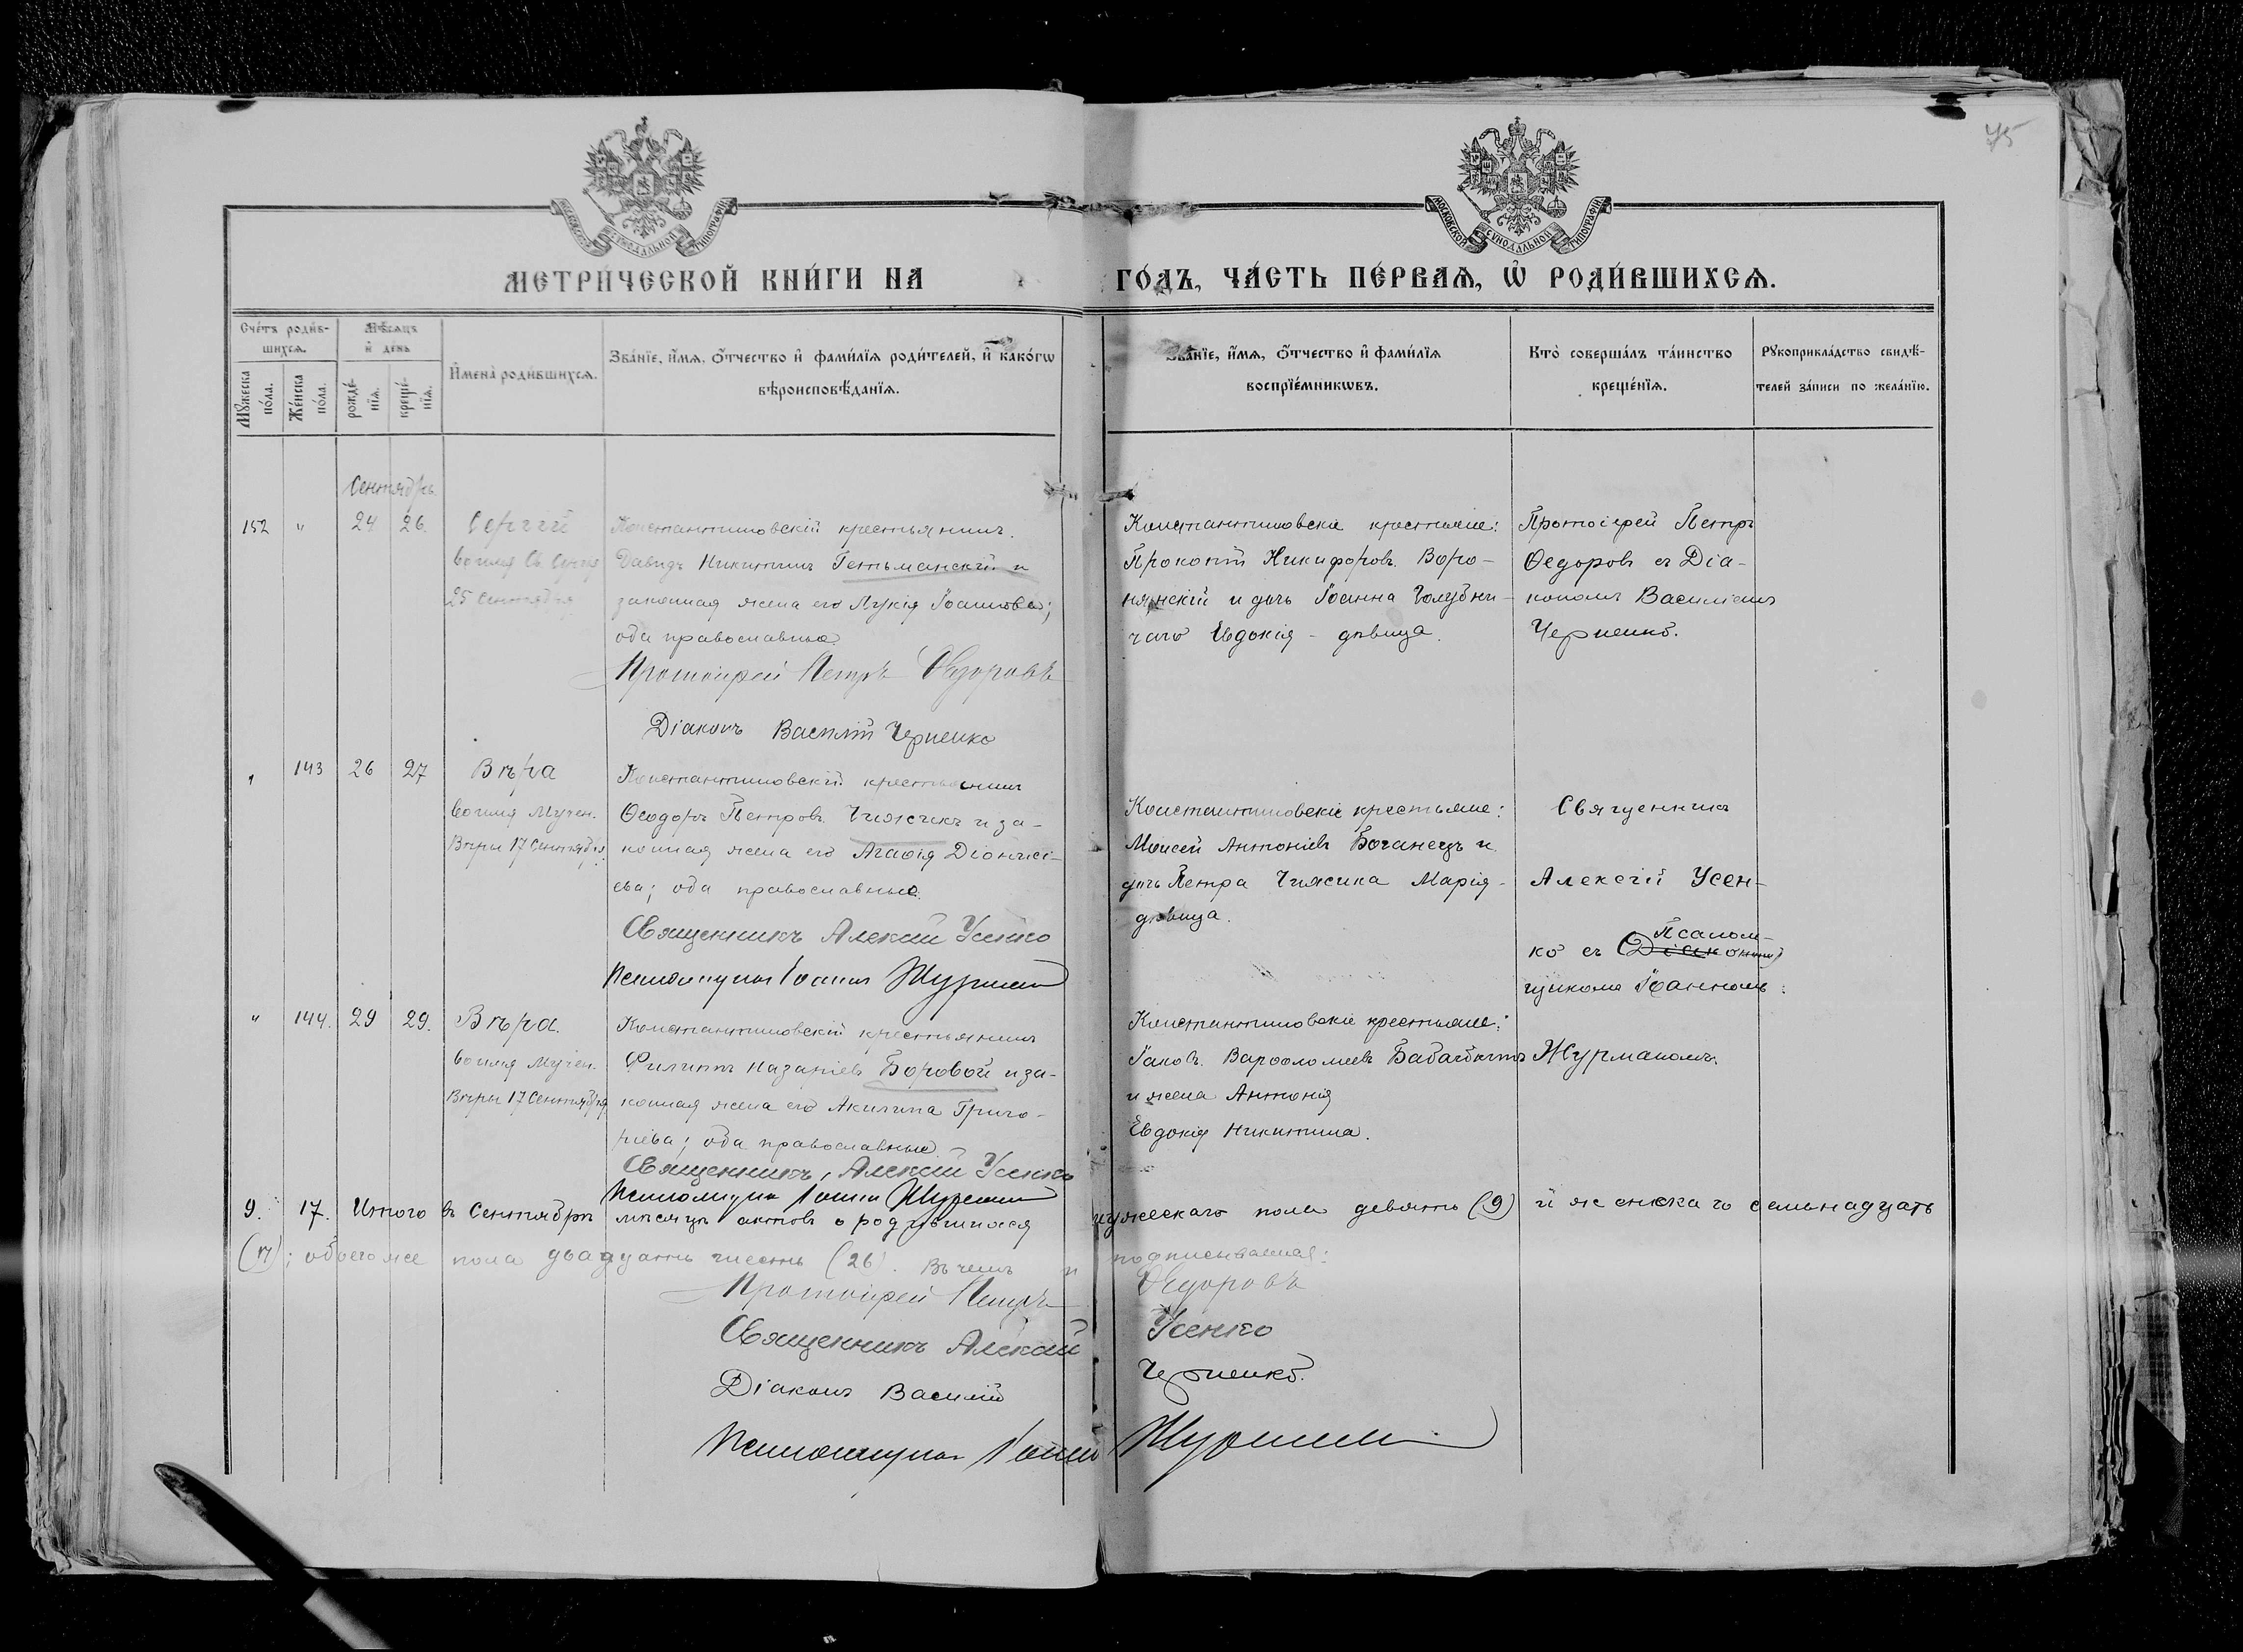 75
МОСКОВСКОЙ СѴНОДАЛЬНОЙ ТИПОГРАФІИ
МОСКОВСКОЙ СѴНОДАЛЬНОЙ ТИПОГРАФІИ
МЕТРИ́ЧЕСКОЙ КНИ́ГИ НА ГО́ДЪ, ЧА́СТЬ ПЕ́РВАѦ, Ѡ РОДИ́ВШИХСѦ.
Сче́тъ роди́в-
шихсѧ.
Мѣ́сѧцъ
и҆ де́нь
Мꙋ́жеска
по́ла.
Же́нска
по́ла.
рожде́-
нїѧ.
креще́-
нїѧ.
И҆мена̀ роди́вшихсѧ.
Зва́нїе, и҆́мѧ, ѻ҆́тчество и҆ фами́лїѧ роди́телей, и҆ како́гѡ
вѣроисповѣ́данїѧ.
Зва́нїе, и҆́мѧ, ѻ҆́тчество и҆ фами́лїѧ
воспрїе́мникѡвъ.
Кто̀ соверша́лъ та́инство
креще́нїѧ.
Рꙋкоприкла́дство свидѣ́-
телей за́писи по жела́нїю.
Сентябрь.
152 " 24 26. Сергій
во имя Св. Сергія
25 Сентября
Константиновскій крестьянинъ
Давидъ Никитинъ Гетьманскій и
законная жена его Лукія Іоаннова;
оба православные.
Протоіерей Петръ Ѳедоровъ
Діаконъ Василій Черненко
Константиновскіе крестьяне:
Прокопій Никифоровъ Воро-
нянскій и дочь Іоанна Голубни-
чаго Евдокія - дѣвица.
Протоіерей Петръ
Ѳедоровъ съ Діа-
кономъ Василіемъ
Черненко.
" 143 26 27 Вѣра
во имя Мучен.
Вѣры 17 Сентября
Константиновскій крестьянинъ
Ѳеодоръ Петровъ Чижикъ и за-
конная жена его Агаѳія Діонисі-
ева; оба православные.
Священникъ Алексій Усенко
Псаломщикъ Іоаннъ Журманъ
Константиновскіе крестьяне:
Моисей Антоніевъ Боганецъ и
дочь Петра Чижика Марія -
дѣвица.
Священникъ
Алексій Усен-
ко съ Діакономъ Псалом-
щикомъ Іоанномъ
Журманомъ.
" 144. 29 29. Вѣра.
во имя Мучен.
Вѣры 17 Сентября
Константиновскій крестьянинъ
Филиппъ Назаріевъ Боровой и за-
конная жена его Акилина Григо-
ріева; оба православные
Священникъ, Алексій Усенко
Псаломщикъ Іоаннъ Журманъ
Константиновскіе крестьяне:
Іаковъ Варѳоломеевъ
и жена Антонія
Евдокія Никитина.
9. 17. Итого въ Сентябрѣ мѣсяцѣ актовъ о родившихся мужескаго пола девять (9) и женскаго семьнадцать
(17); обоего же пола двадцать шесть (26). Въ чемъ и подписываемся:
Протоіерей Петръ Ѳедоровъ
Священникъ Алексій Усенко
Діаконъ Василій Черненко.
Псаломщикъ Іоаннъ Журманъ